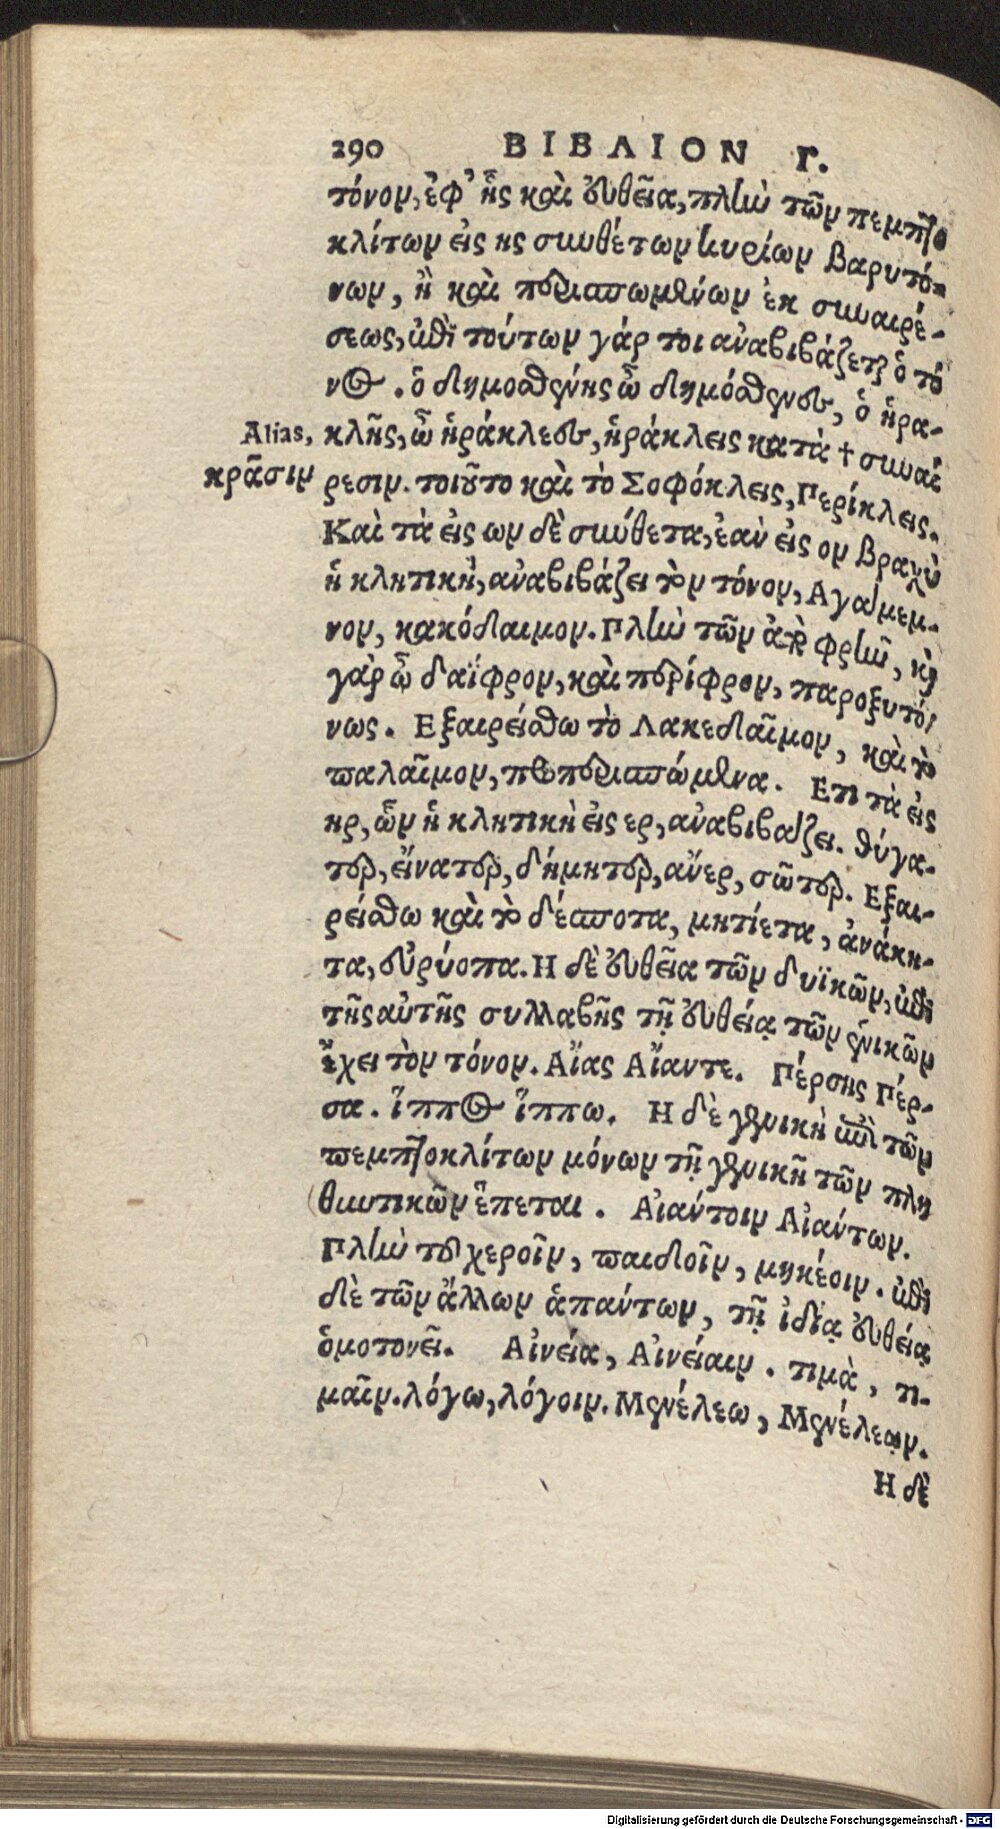 290 ΒΙΒΛΙΟΝ Γ.
τόνον, ἐφ' ἧς καὶ εὐθεῖα, πλὴν τῶν πεμπτο
κλίτων εἰς ης συνθέτων κυρίων βαρυτό-
νων, ἢ καὶ περισπωμένων ἐκ συναιρέ-
σεως, ἐπὶ τούτων γάρ τοι ἀναβιβάζεται ὁ τό
νος. ὁ δημοσθένης ὦ δημόσθενες, ὁ ἡρα-
κλῆς, ὦ ἡράκλεες, ἡράκλεις κατὰ † συναί
Alias,
κρᾶσιν
ρεσιν. τοιοῦτο καὶ τὸ Σοφόκλεις, Περίκλεις.
Καὶ τὰ εἰς ων δὲ σύνθετα, ἐὰν εἰς ον βραχὺ
ἡ κλητικὴ, ἀναβιβάζει τὸν τόνον, Αγάμεμ-
νον, κακόδαιμον. Πλὴν τῶν ἀπὸ φρὴν, καὶ
γὰρ ὦ δαΐφρον, καὶ περίφρον, παροξυτό-
νως. Εξαιρείσθω τὸ Λακεδαῖμον, καὶ τὸ
παλαῖμον, προπερισπώμενα. Ετι τὰ εἰς
ηρ, ὧν ἡ κλητικὴ εἰς ερ, ἀναβιβάζει. θύγα-
τερ, εἴνατερ, δήμητερ, ἄνερ, σῶτερ. Εξαι-
ρείσθω καὶ τὸ δέσποτα, μητίετα, ἀνάκη-
τα, εὐρύοπα. Η δὲ εὐθεῖα τῶν δυϊκῶν, ἐπὶ
τῆς αὐτῆς συλλαβῆς τῇ εὐθείᾳ τῶν ἑνικῶν
ἔχει τὸν τόνον. Αἴας Αἴαντε. Πέρσης Πέρ-
σα. ἵππος ἵππω. Η δὲ γενικὴ ἐπὶ τῶν
πεμπτοκλίτων μόνων τῇ γενικῇ τῶν πλη
θυντικῶν ἕπεται. Αἰάντοιν Αἰάντων.
Πλὴν τοῦ χεροῖν, παιδοῖν, μηκέοιν. ἐπὶ
δὲ τῶν ἄλλων ἁπάντων, τῇ ἰδίᾳ εὐθείᾳ
ὁμοτονεῖ. Αἰνεία, Αἰνείαιν. τιμὰ, τι-
μαῖν. λόγω, λόγοιν. Μενέλεω, Μενέλεῳν.
Η δὲ
Digitalisierung gefördert durch die Deutsche Forschungsgemeinschaft - DFG